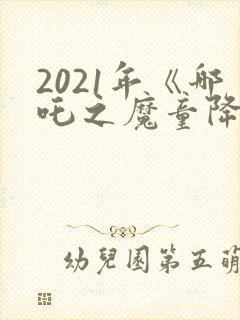 2021年《哪
吒之魔童降
幼兒園第五萌